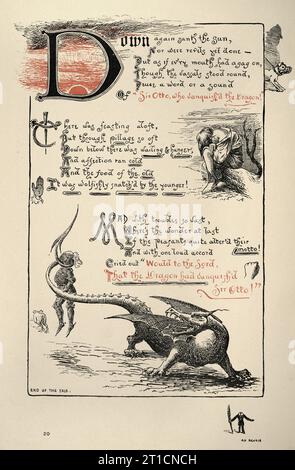 Down again sank the sun,
Nor were revels yet done –
But as if ev'ry mouth had a gag on,
Though the vassals stood round,
Ne'er a word or a sound
Of "Sir Otto, who vanquish'd the Dragon!"
There was feasting aloft,
But through pillage so oft
Down below there was wailing & hunger,
And affection ran cold
And the food of the old
It was wolfishly snatch'd by the younger!
Mad with troubles so vast,
Where's the wonder at last
If the Peasants quite alter'd their
motto!
And with one loud accord
Cried out "Would to the Lord,
That the Dragon had vanquish'd
Sir Otto!"
END OF THE TALE.
20
alamy
Image ID: 2T1CNCH
www.alamy.com